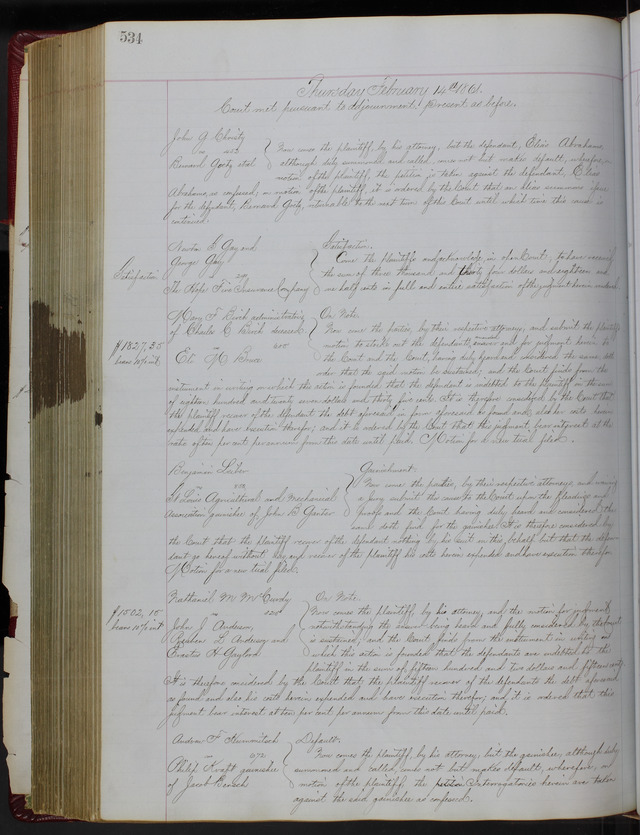 534
Thursday February 14th 1861.
Court met pursuant to adjournment! present as before.
John G Christy
vs
Bernard Goity et al
Now comes the plaintiff, by his attorney, but the defendant, Elias Abrahams,
although duly summoned and called, comes not but makes default, wherefore, on
motion of the plaintiff, the petition is taken against the defendant, Elias
Abrahams, as confessed; on motion of the plaintiff, it is ordered by the Court that an alias summons issue
for the defendant, Bernard Goity, returnable to the next term of this Court until which time this cause is
continued.
Satisfaction
George Gay
vs
The Hope Fire Insurance Company
Satisfaction.
Come the plaintiffs and acknowledge, in open Court, to have received
the sum of three thousand and thirty four dollars and eighteen and
one half cents in full and entire satisfaction of the judgment herein rendered.
$1827,35
bears 10% int
Mary F Birch administratrix
of Charles C Birch deceased
vs
Eli M Bruce
On Note.
Now come the parties, by their respective attorneys, and submit the plaintiff's
motion to strike out the defendant's answer and for judgment herein to
the Court and the Court, having duly heard and considered the same doth
order that the said motion be sustained; and the Court finds from the
instrument in writing on which the action is founded, that the defendant is indebted to the plaintiff in the sum
of eighteen hundred and twenty seven dollars and thirty five cents. It is therefore considered by the Court that
the plaintiff recover of the defendant the debt aforesaid in form aforesaid so found and also her costs herein
expended and have execution therefor; and it is ordered by the Court that this judgment, bear interest at the
rate of ten per cent per annum from this date until paid. Motion for a new trial filed.
Benjamin
vs
St Louis Agricultural and Mechanical
association garnishee of John B Ganter
Garnishment.
Now come the parties, by their respective attorneys and waiving
a jury submit the cause to the Court upon the pleadings and
proofs and the Court having duly heard and considered the
same doth find for the garnishee. It is therefore considered by
the Court that the plaintiff recover of the defendant nothing by his suit in this behalf but that the defen-
dant go hence without day and recover of the plaintiff its costs herein expended and have execution therefor.
Motion for a new trial filed.
$1502,15
bears 10% int
Nathaniel M McCurdy
vs
John J Anderson,
Reuben L Anderson and
Erastus H Gaylord
On Note.
Now comes the plaintiff by his attorney, and the motion for judgment,
notwithstanding the answer being heard and fully considered by the Court
is sustained; and the Court finds from the instrument in writing on
which this action is founded that the defendants are indebted to the
plaintiff in the sum of fifteen hundred and two dollars and fifteen cents.
It is therefore considered by the Court that the plaintiff recover of the defendants the debt aforesaid
so found and also his costs herein expended and have execution therefor; and it is ordered that this
judgment bear interest at ten per cent per annum from this date until paid.
Andrew F
vs
Philip Kraft garnishee
of Jacob
Default.
Now comes the plaintiff, by his attorney, but the garnishee, although duly
summoned and called, comes not but makes default, wherefore, on
motion of the plaintiff, the Interrogatories herein are taken
against the said garnishee as confessed.